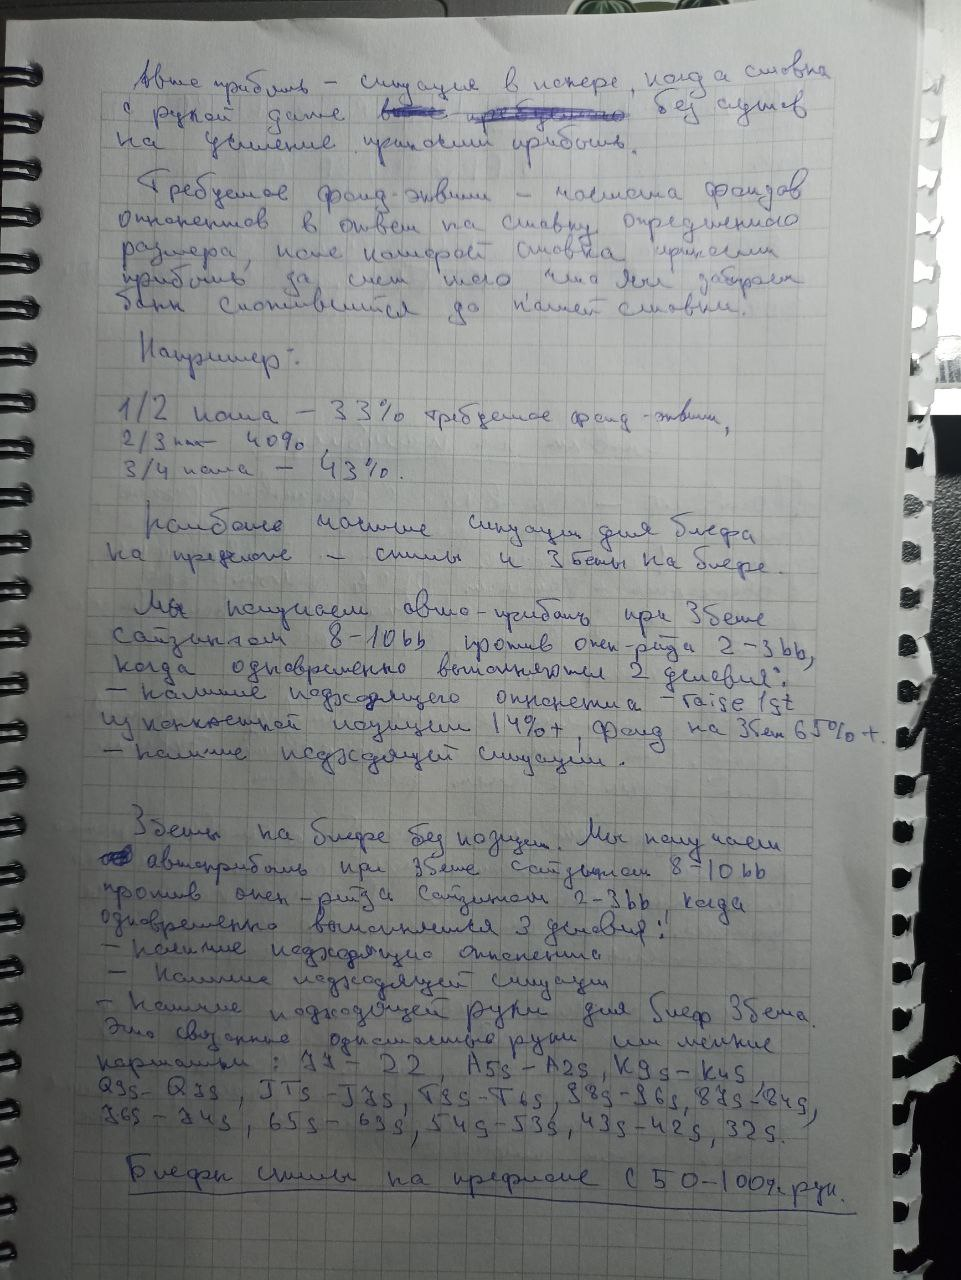 Авто прибыль – ситуация в покере, когда ставка
с рукой даже без аутов
на усиление приносит прибыль.
Требуемое фолд-эквити – частота фолдов
оппонентов в ответ на ставку определенного
размера, после которой ставка приносит
прибыль за счет того что мы забираем
банк сложившийся до нашей ставки.
Например:
1/2 пота – 33% требуемое фолд-эквити,
2/3 пот – 40%
3/4 пота – 43%.
Наиболее частые ситуации для блефа
на префлопе – стилы и 3беты на блефе.
Мы получаем авто-прибыль при 3бете
сайзингом 8-10bb против опен-рейза 2-3bb,
когда одновременно выполняются 2 условия:
– наличие подходящего оппонента – raise 1st
из конкретной позиции 14%+, фолд на 3бет 65%+.
– наличие подходящей ситуации.
3беты на блефе без позиции. Мы получаем
автоприбыль при 3бете сайзингом 8-10bb
против опен-рейза сайзингом 2-3bb, когда
одновременно выполняются 3 условия:
– наличие подходящего оппонента
– наличие подходящей ситуации
– наличие подходящей руки для блеф 3бета.
Это связанные одномастные руки или мелкие
карманки: 77-22, A5s-A2s, K9s-K4s,
Q9s-Q7s, JTs-J7s, T9s-T6s, 98s-96s, 87s-84s,
76s-74s, 65s-63s, 54s-53s, 43s-42s, 32s.
Блефы стилы на префлопе с 50-100% рук.